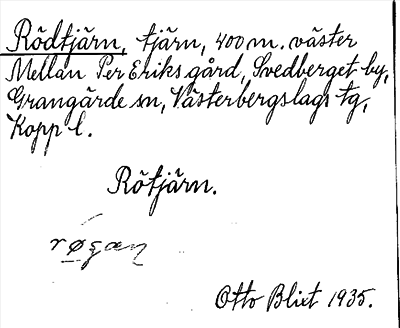 Rödtjärn, tjärn, 400 m. väster
Mellan Per Eriks gård, Svedberget by,
Grangärde sn, Västerbergslags tg,
Kopp l.
Rötjärn.
Otto Blixt 1935.